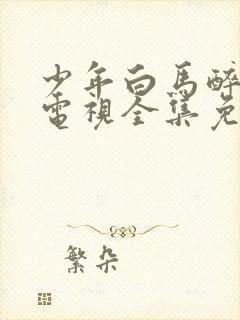 少年白马醉
電視全集免
繁朵